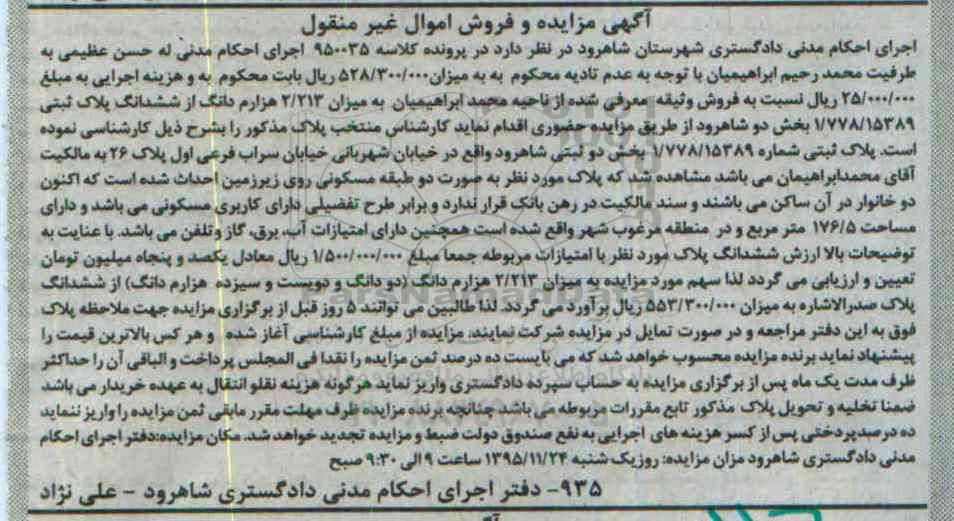 آگهی مزایده و فروش اموال غیر منقول
اجرای احکام مدنی دادگستری شهرستان شاهرود در نظر دارد در پرونده کلاسه ۹۵۰۰۳۵ اجرای احکام مدنی له حسن عظیمی به
طرفیت محمد رحیم ابراهیمیان با توجه به عدم تادیه محکوم به به میزان ۵۲۸/۳۰۰/۰۰۰ ریال بابت محکوم به و هزینه اجرایی به مبلغ
۲۵/۰۰۰/۰۰۰ ریال نسبت به فروش وثیقه معرفی شده از ناحیه محمد ابراهیمیان به میزان ۲/۲۱۳ هزارم دانگ از ششدانگ پلاک ثبتی
۱/۷۷۸/۱۵۳۸۹ بخش دو شاهرود از طریق مزایده حضوری اقدام نماید کارشناس منتخب پلاک مذکور را بشرح ذیل کارشناسی نموده
است. پلاک ثبتی شماره ۱/۷۷۸/۱۵۳۸۹ بخش دو ثبتی شاهرود واقع در خیابان شهربانی خیابان سراب فرعی اول پلاک ۲۶ به مالکیت
آقای محمدابراهیمان می باشد مشاهده شد که پلاک مورد نظر به صورت دو طبقه مسکونی روی زیرزمین احداث شده است که اکنون
دو خانوار در آن ساکن می باشند و سند مالکیت در رهن بانک قرار ندارد و برابر طرح تفضیلی دارای کاربری مسکونی می باشد و دارای
مساحت ۱۷۶/۵ متر مربع و در منطقه مرغوب شهر واقع شده است همچنین دارای امتیازات آب، برق، گاز و تلفن می باشد. با عنایت به
توضیحات بالا ارزش ششدانگ پلاک مورد نظر با امتیازات مربوطه جمعا مبلغ ۱/۵۰۰/۰۰۰/۰۰۰ ریال معادل یکصد و پنجاه میلیون تومان
تعیین و ارزیابی می گردد لذا سهم مورد مزایده به میزان ۲/۲۱۳ هزارم دانگ (دو دانگ و دویست و سیزده هزارم دانگ) از ششدانگ
پلاک صدرالاشاره به میزان ۵۵۳/۳۰۰/۰۰۰ ریال برآورد می گردد. لذا طالبین می توانند ۵ روز قبل از برگزاری مزایده جهت ملاحظه پلاک
فوق به این دفتر مراجعه و در صورت تمایل در مزایده شرکت نمایند. مزایده از مبلغ کارشناسی آغاز شده و هر کس بالاترین قیمت را
پیشنهاد نماید برنده مزایده محسوب خواهد شد که می بایست ده درصد ثمن مزایده را نقدا فی المجلس پرداخت و الباقی آن را حداکثر
ظرف مدت یک ماه پس از برگزاری مزایده به حساب سپرده دادگستری واریز نماید هرگونه هزینه نقلو انتقال به عهده خریدار می باشد
ضمنا تخلیه و تحویل پلاک مذکور تابع مقررات مربوطه می باشد چنانچه برنده مزایده ظرف مهلت مقرر مابقی ثمن مزایده را واریز ننماید
ده درصد پرداختی پس از کسر هزینه های اجرایی به نفع صندوق دولت ضبط و مزایده تجدید خواهد شد. مکان مزایده: دفتر اجرای احکام
مدنی دادگستری شاهرود مزان مزایده: روز یک شنبه ۱۳۹۵/۱۱/۲۴ ساعت ۹ الی ۹:۳۰ صبح
۹۳۵- دفتر اجرای احکام مدنی دادگستری شاهرود – علی نژاد